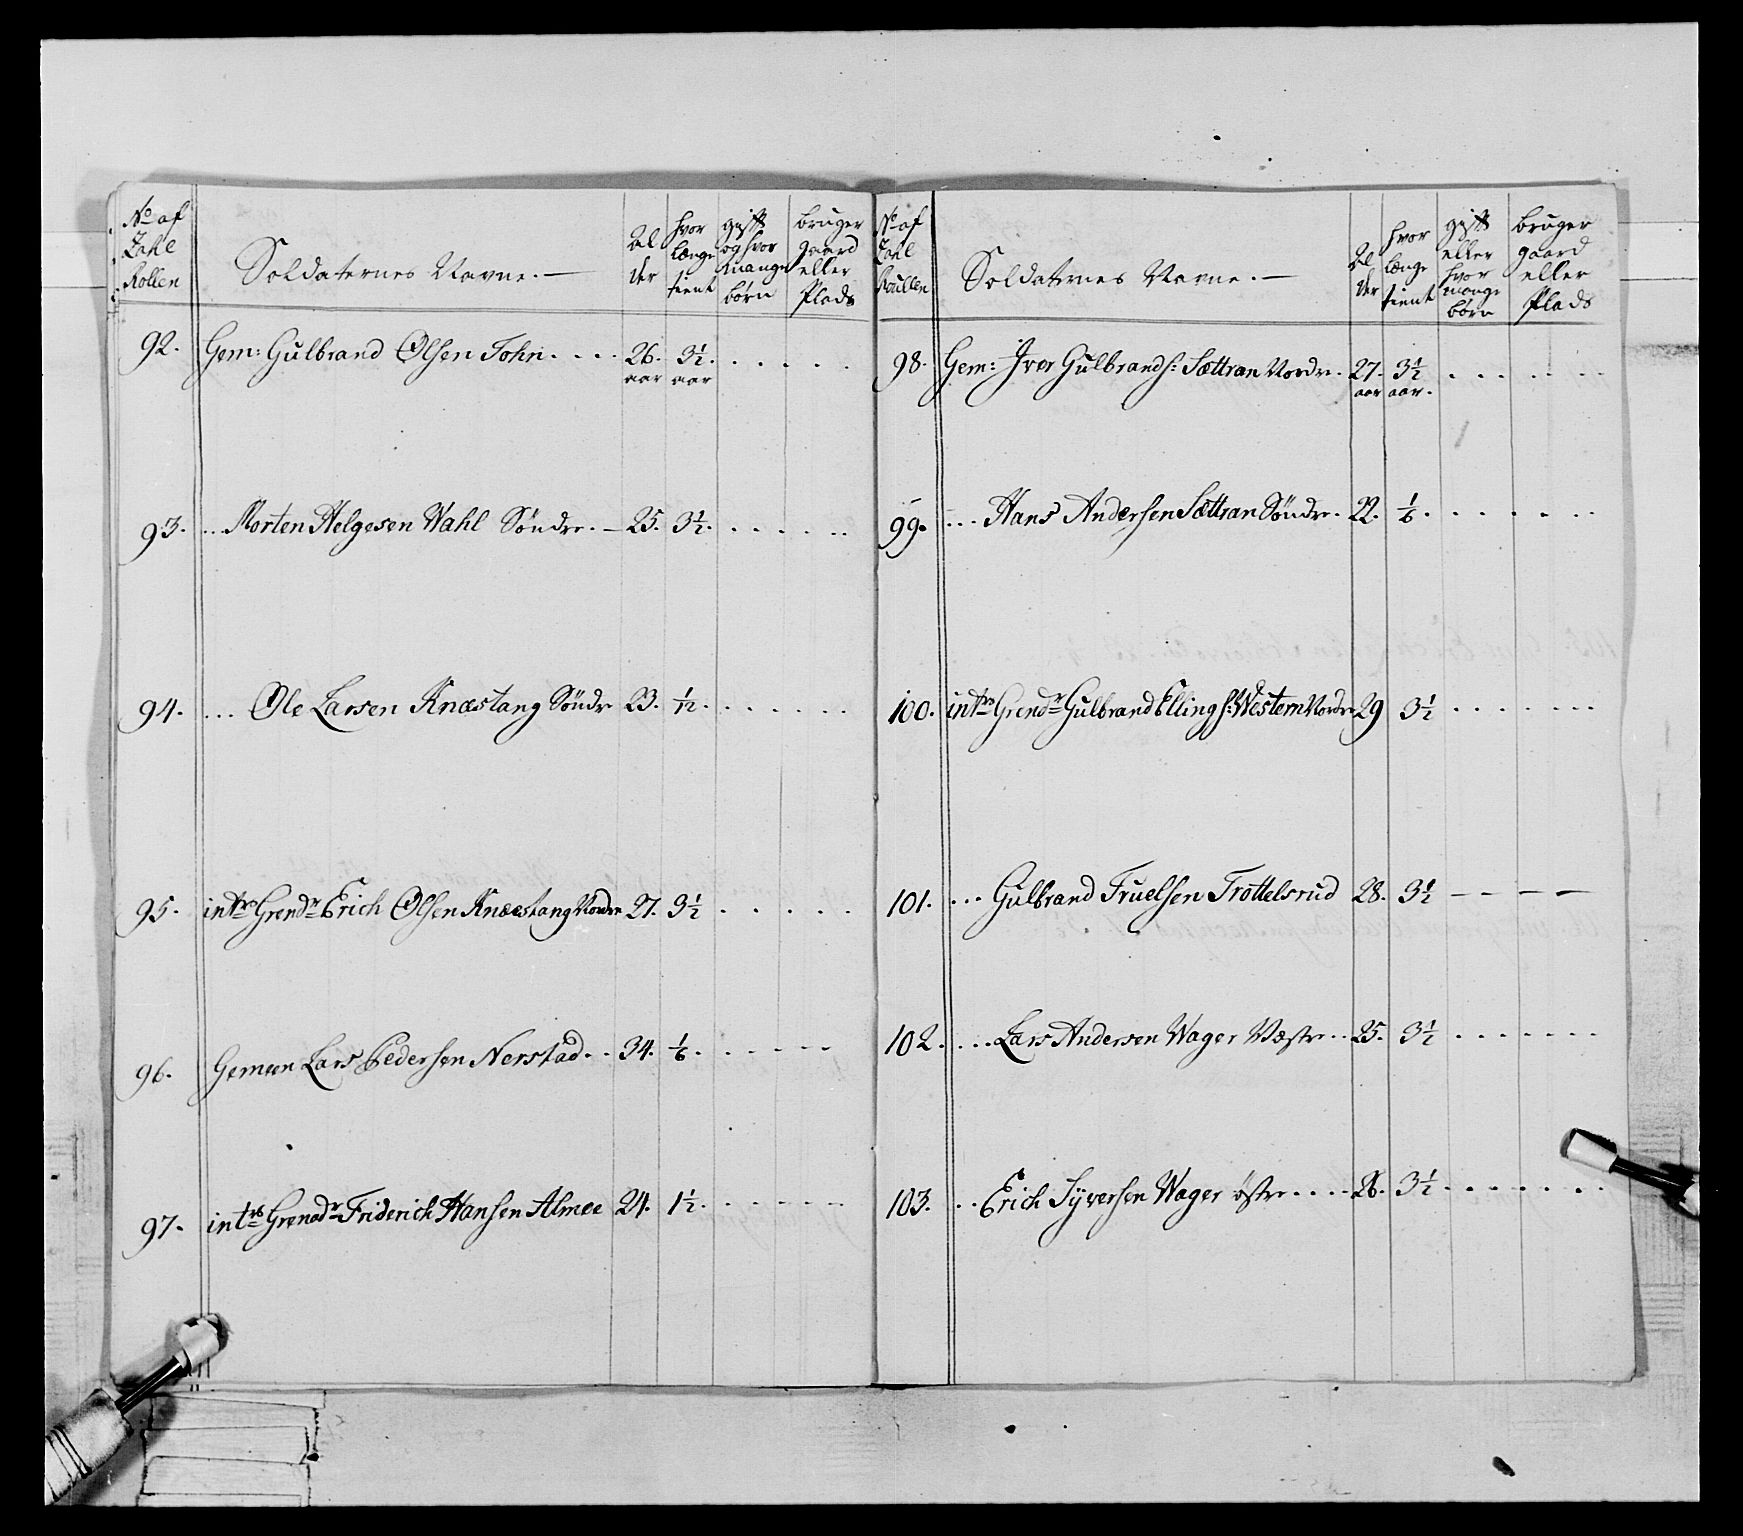 No af Zahl Rollen
Soldaternes Navne. —
Al der
hvor længe tient
gift og hvor mange børn
bruger gaard eller Plads
92. Gem: Gulbrand Olsen Tohn.... 26. aar 3½. aar .....
93. ... Morten Helgesen Wahl Söndre. — 25. 3½. ......
94. ... Ole Larsen Knæstang Söndr 23. ½. ......
95. intrs Grendr Erich Olsen Knæstang Nordre 27. 3½ .....
96. Gemeen Lars Pedersen Nerstad.. 34. ⅙. .....
97. intrs Grenadr Friderich Hansen Almee 24. 1½. .....
No af Zahl Roullen
Soldaternes Navne. —
Al der
hvor længe tient
gift eller hvor mange børn
bruger gaard eller Plads
98. Gem: Iver Gulbrands: Sættran Nordr. 27. aar 3½ aar. ......
99. ... Hans Andersen Sættran Söndr. 22. ⅙. ......
100. intrs Grendr Gulbrand Ellings: Western Nordre 29 3½ .......
101. ... Gulbrand Fruelsen Trottelsrud 28. 3½ — — — —
102. ... Lars Andersen Wager Væstr.. 25. 3½ .......
103. .. Erich Syversen Wager östr.... 26. 3½ .......